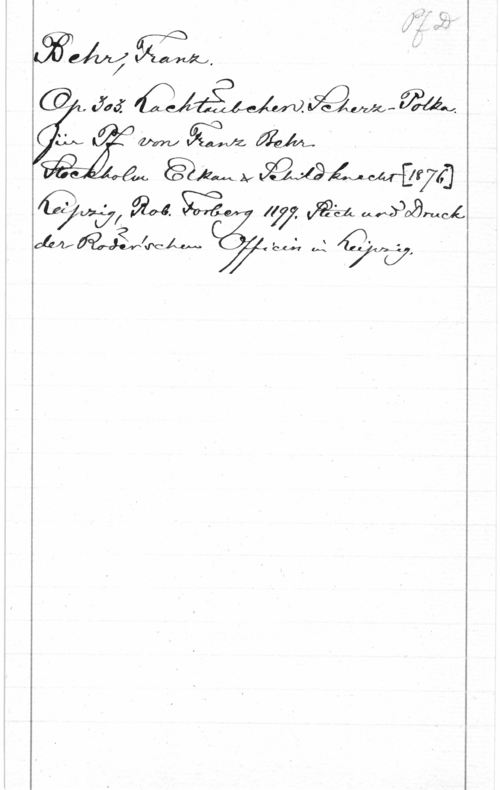 Pf D
Behr, Franz.
Op. 303. Lachtäubchen. Scherz-Polka.
für Pf von Franz Behr
Stockholm Elkan & Schildknecht [1876]
Leipzig, Rob. Forberg 1199. Stich und Druck
der Röder'schen Officin in Leipzig.